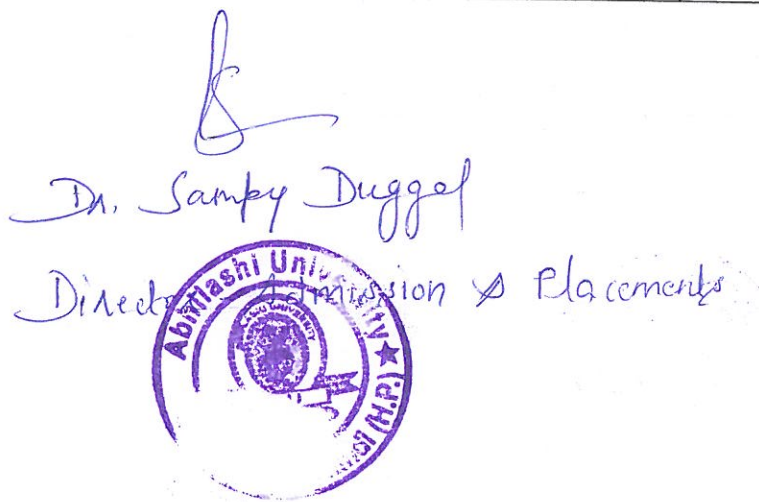 Dr. Sampy Duggal
Director Admission & Placements
Abhilashi University ★ (H.P.)
UNIVERSITY